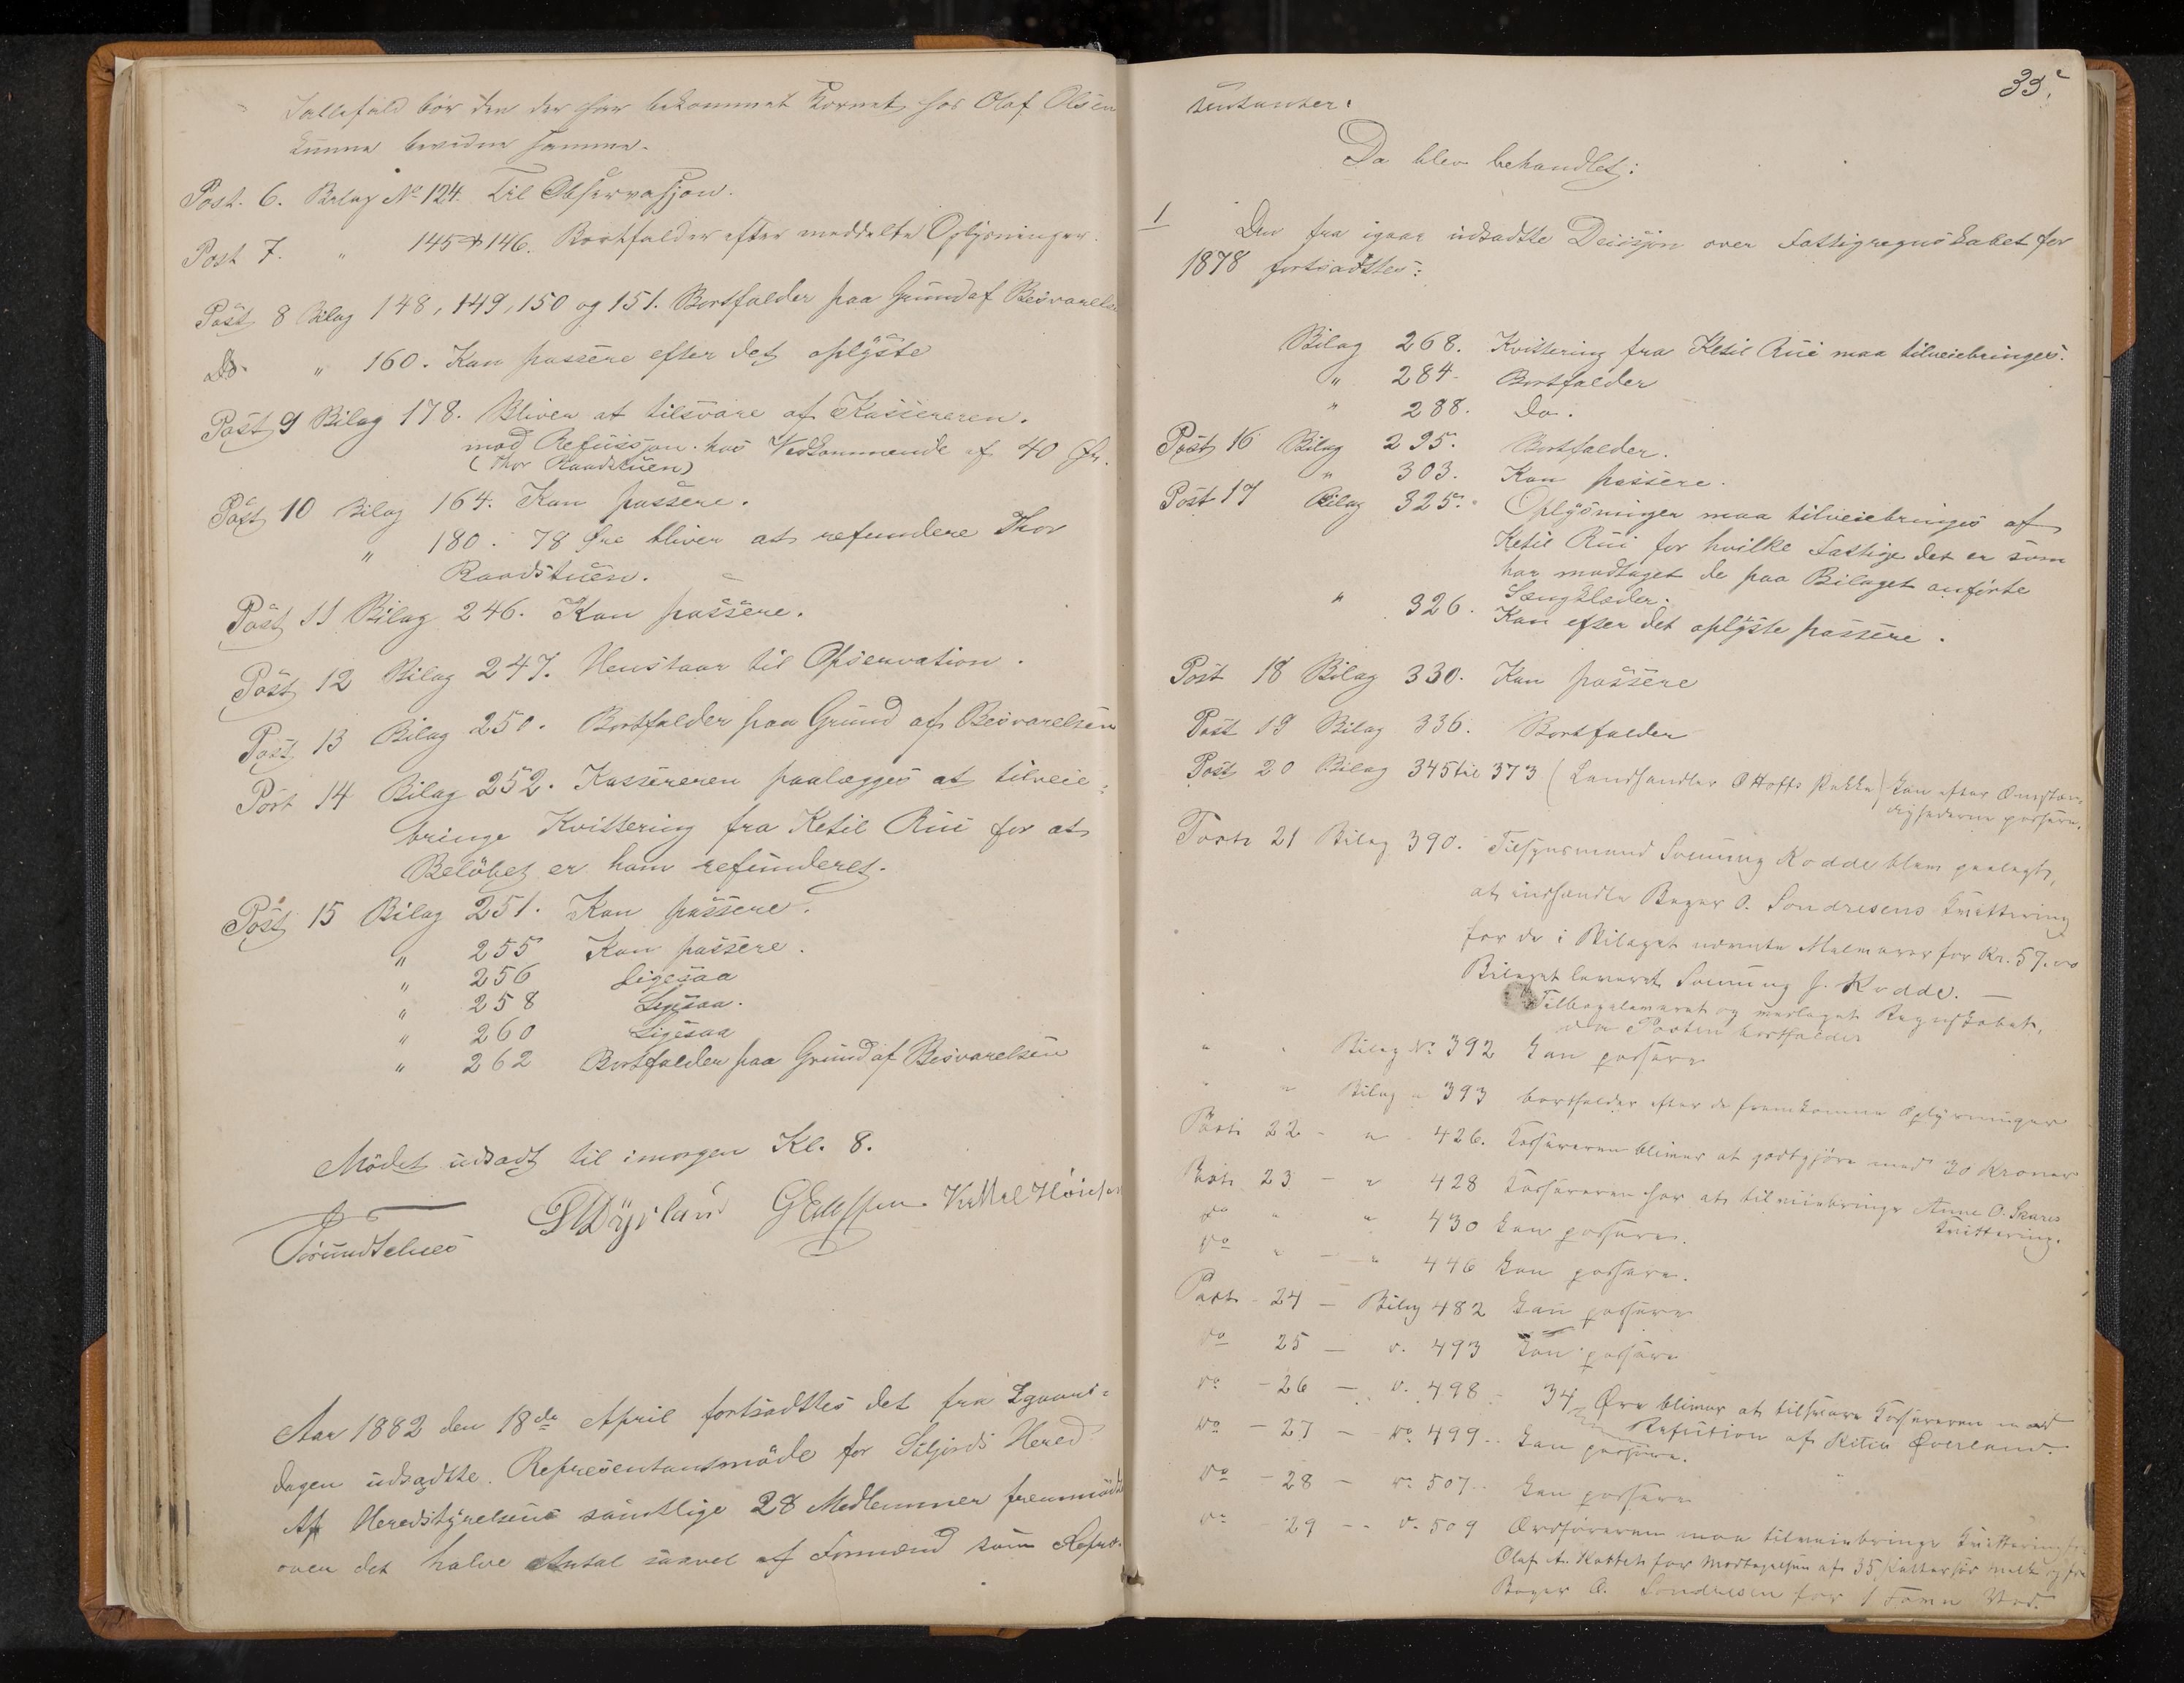 Tillefæld bør den der har bekommet Kornet hos Olaf Olsen
kunne bevidne samme.
Post. 6. Bilag No 124. Til Observasjon.
Post 7. " 145 & 146. Bortfalder efter meddelte Oplysninger.
Post 8 Bilag 148, 149, 150 og 151. Bortfalder paa Grund af Besvarelse
Do " 160. Kan passere efter det oplyste
Post 9 Bilag 178. Bliver at tilsvare af Kassereren.
mod Refusjon hos Vedkommende af 40 Ør.
(Thor Raadstuen)
Post 10 Bilag 164. Kan passere.
" 180. 78 Øre bliver at refundere Thor
Raadstuen.
Post 11 Bilag 246. Kan passere.
Post 12 Bilag 247. Henstaar til Opservation.
Post 13 Bilag 250. Bortfalder paa Grund af Besvarelsen
Post 14 Bilag 252. Kassereren paalægges at tilveie-
bringe Kvittering fra Ketil Rui for at
Beløbet er ham refunderet.
Post 15 Bilag 251. Kan passere.
" 255 Kan passere.
" 256 Ligesaa
" 258 Ligesaa.
" 260 Ligesaa
" 262 Bortfalder paa Grund af Besvarelsen
Mødet udsadt til imorgen Kl. 8.
Aar 1882 den 18de April fortsadttes det fra Igaars-
dagen udsadtte Representantmøde for Siljords Hered
Af Heredstyrelsens samtlige 28 Medlemmer fremmødt
over det halve Antal saavel af Formænd som Repre-
35.
sentanter:
Da blev behandlet:
1 Den fra igaar udsadtte Desisjon over Fattigregnskabet for
1878 fortsadttes:
Bilag 268. Kvittering fra Ketil Rui maa tilveiebringes.
" 284. Bortfalder
" 288. Do.
Post 16 Bilag 295. Bortfalder.
" 303. Kan passere.
Post 17 Bilag 325. Oplysninger maa tilveiebringes af
Ketil Rui for hvilke Fattige det er som
har modtaget de paa Bilaget anførte
Sængklæder.
" 326. Kan efter det oplyste passere.
Post 18 Bilag 330. Kan passere
Post 19 Bilag 336. Bortfalder
Post 20 Bilag 345 til 373 (Landhandler O Hoffs Pakke) kan efter Omstæn-
dighederne passere.
Post 21 Bilag 390. Tilsynsmand Sveinung Kodde blev paalagt,
at indhendte Bager O. Sondresens Kvittering
for de i Bilaget nævnte Melvarer for Kr. 57.00
Bilaget leveret Sveinung J. Kodde.
Tilbageleveret og vedlaget Regnskabet,
Posten bortfalder
" " Bilag No 392 kan passere
" " Bilag " 393 bortfalder efter de fremkomne Oplysninger
Post 22 - " - 426. Kassereren bliver at godtgjøre med 30 Kroner
Post 23 - " 428 Kassereren har at tilveiebringe Anne O. Skares
Kvittering.
Do " " 430 kan passere.
Do " - " 446 kan passere.
Post - 24 - Bilag 482 kan passere
Do 25 - D. 493 kan passere
Do - 26 - D. 498 - 34 Øre bliver at tilsvare Kassereren mod
Refution af Kitil Øverland.
Do - 27 - Do 499 - kan passere.
Do - 28 - Do 507 - kan passere
Do 29 - - D. 509 Ordføreren maa tilveiebringe Kvittering fra
Olaf A. for Modtagelsen af 35 Melk og fra
Bager O. Sondresen for 1 Favn Ved.